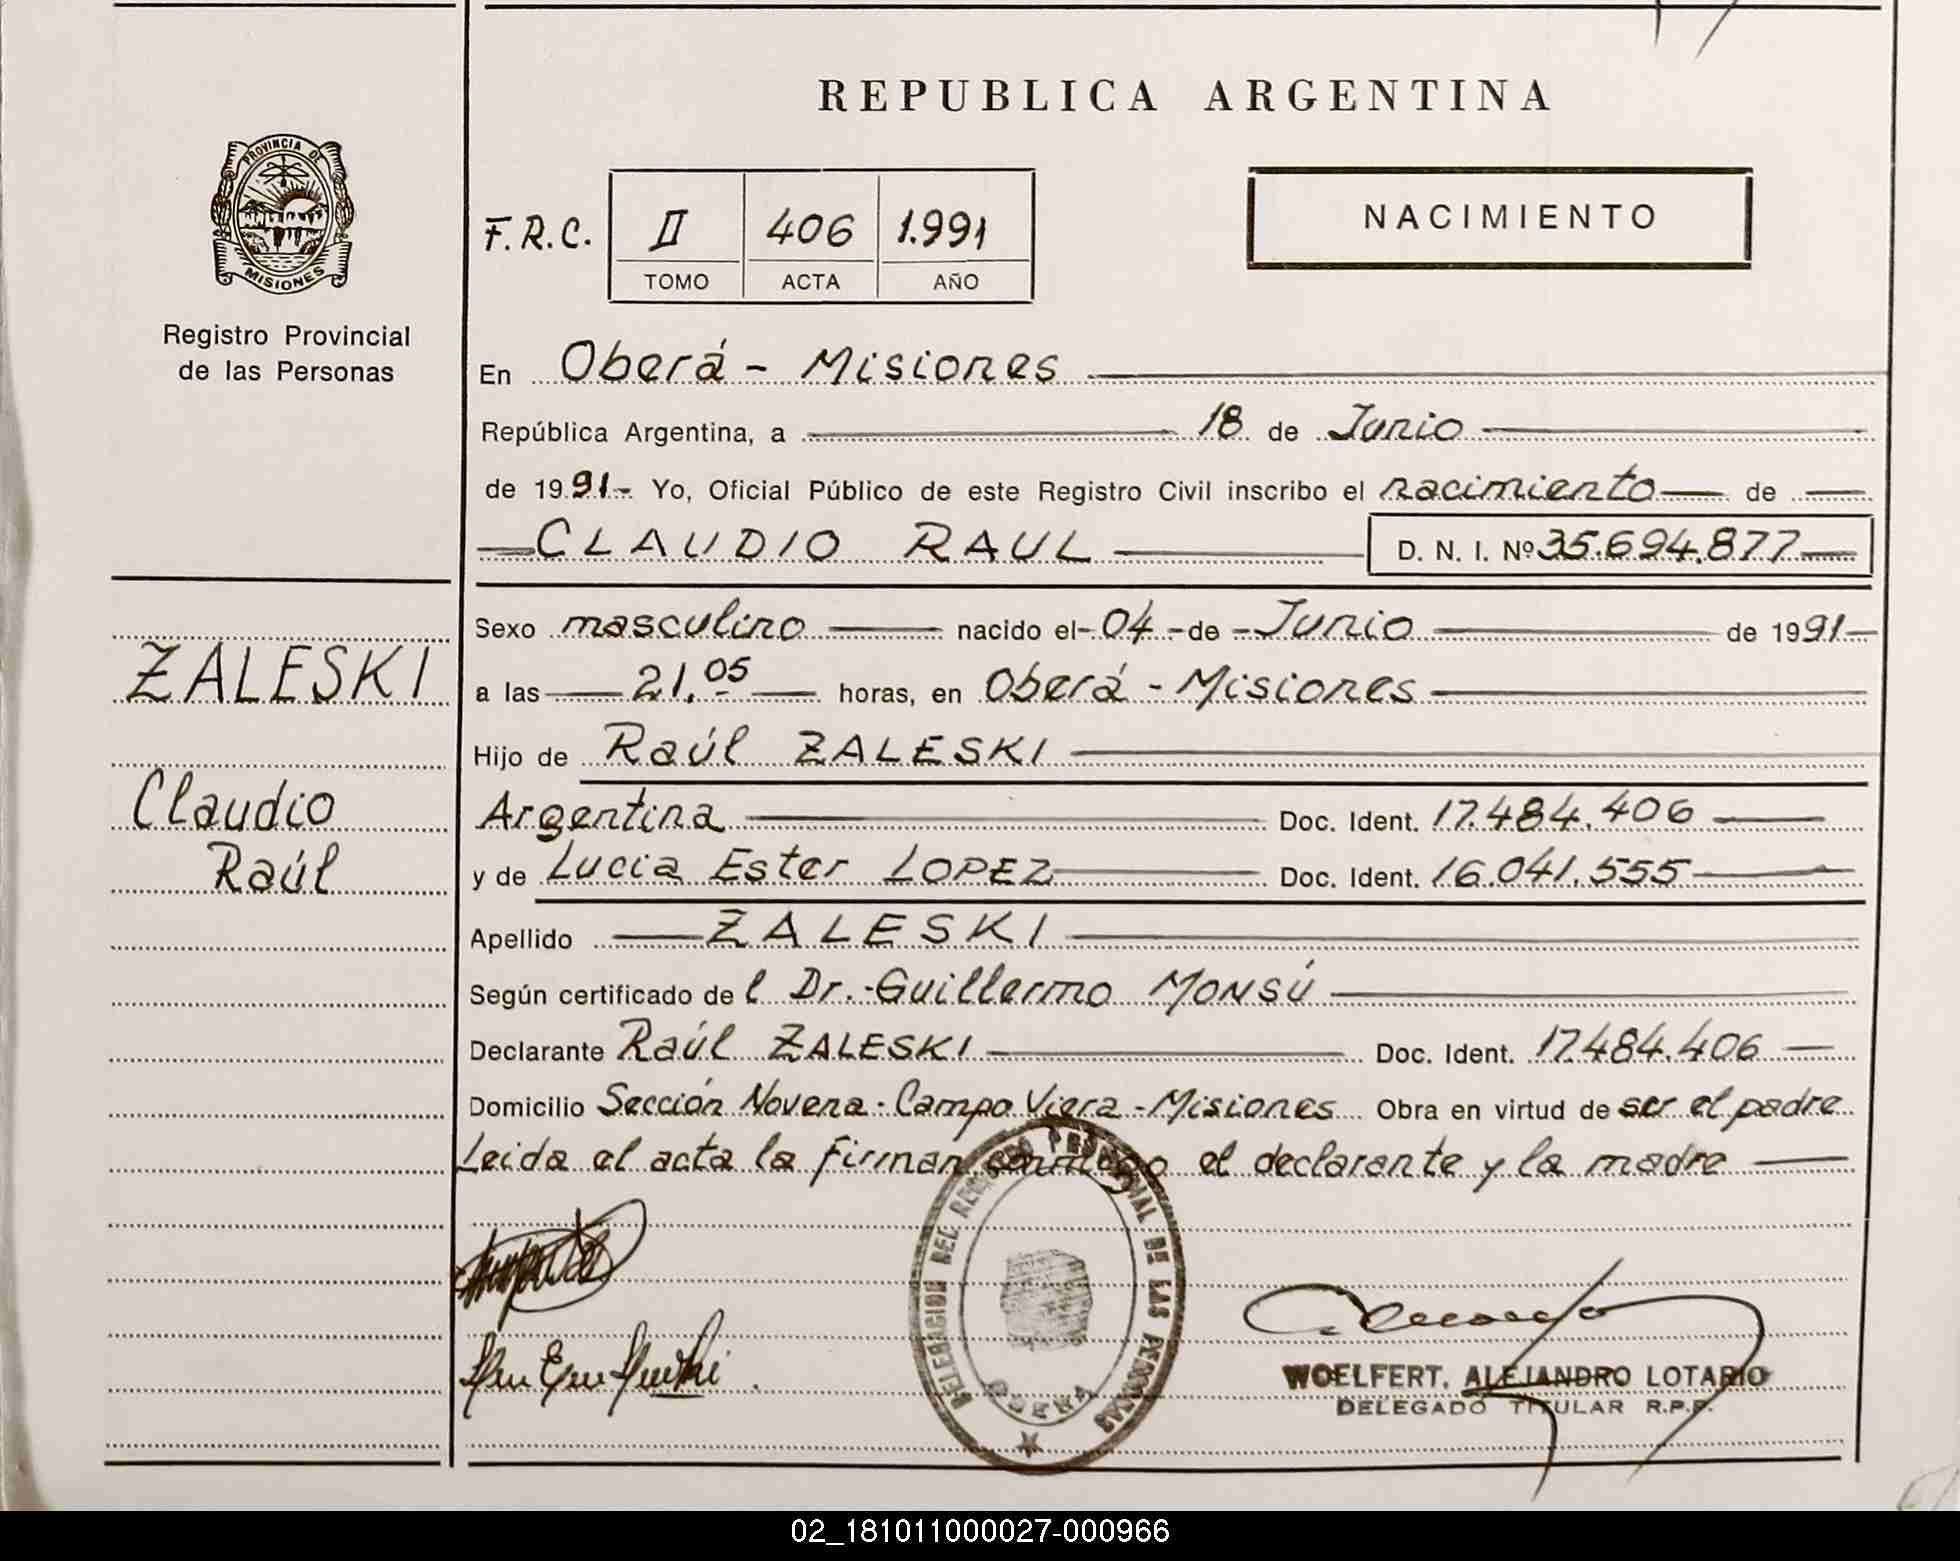 REPUBLICA ARGENTINA
PROVINCIA DE
MISIONES
Registro Provincial
de las Personas
F.R.C. II 406 1.991
TOMO ACTA AÑO
NACIMIENTO
En Oberá - Misiones
República Argentina, a 18 de Junio
de 1991- Yo, Oficial Público de este Registro Civil inscribo el nacimiento de
CLAUDIO RAUL D. N. I. Nº 35.694.877
ZALESKI
Claudio
Raúl
Sexo masculino nacido el - 04 - de - Junio de 1991
a las 21.05 horas, en Oberá - Misiones
Hijo de Raúl ZALESKI
Argentina Doc. Ident. 17.484.406
y de Lucia Ester LOPEZ Doc. Ident. 16.041.555
Apellido ZALESKI
Según certificado del Dr. Guillermo MONSÚ
Declarante Raúl ZALESKI Doc. Ident. 17.484.406
Domicilio Sección Novena - Campo Viera - Misiones Obra en virtud de ser el padre
Leida el acta la firman conmigo el declarante y la madre
DELEGACION DEL REGISTRO PROVINCIAL DE LAS PERSONAS
WOELFERT, ALEJANDRO LOTARIO
DELEGADO TITULAR R.P.P.
02_181011000027-000966